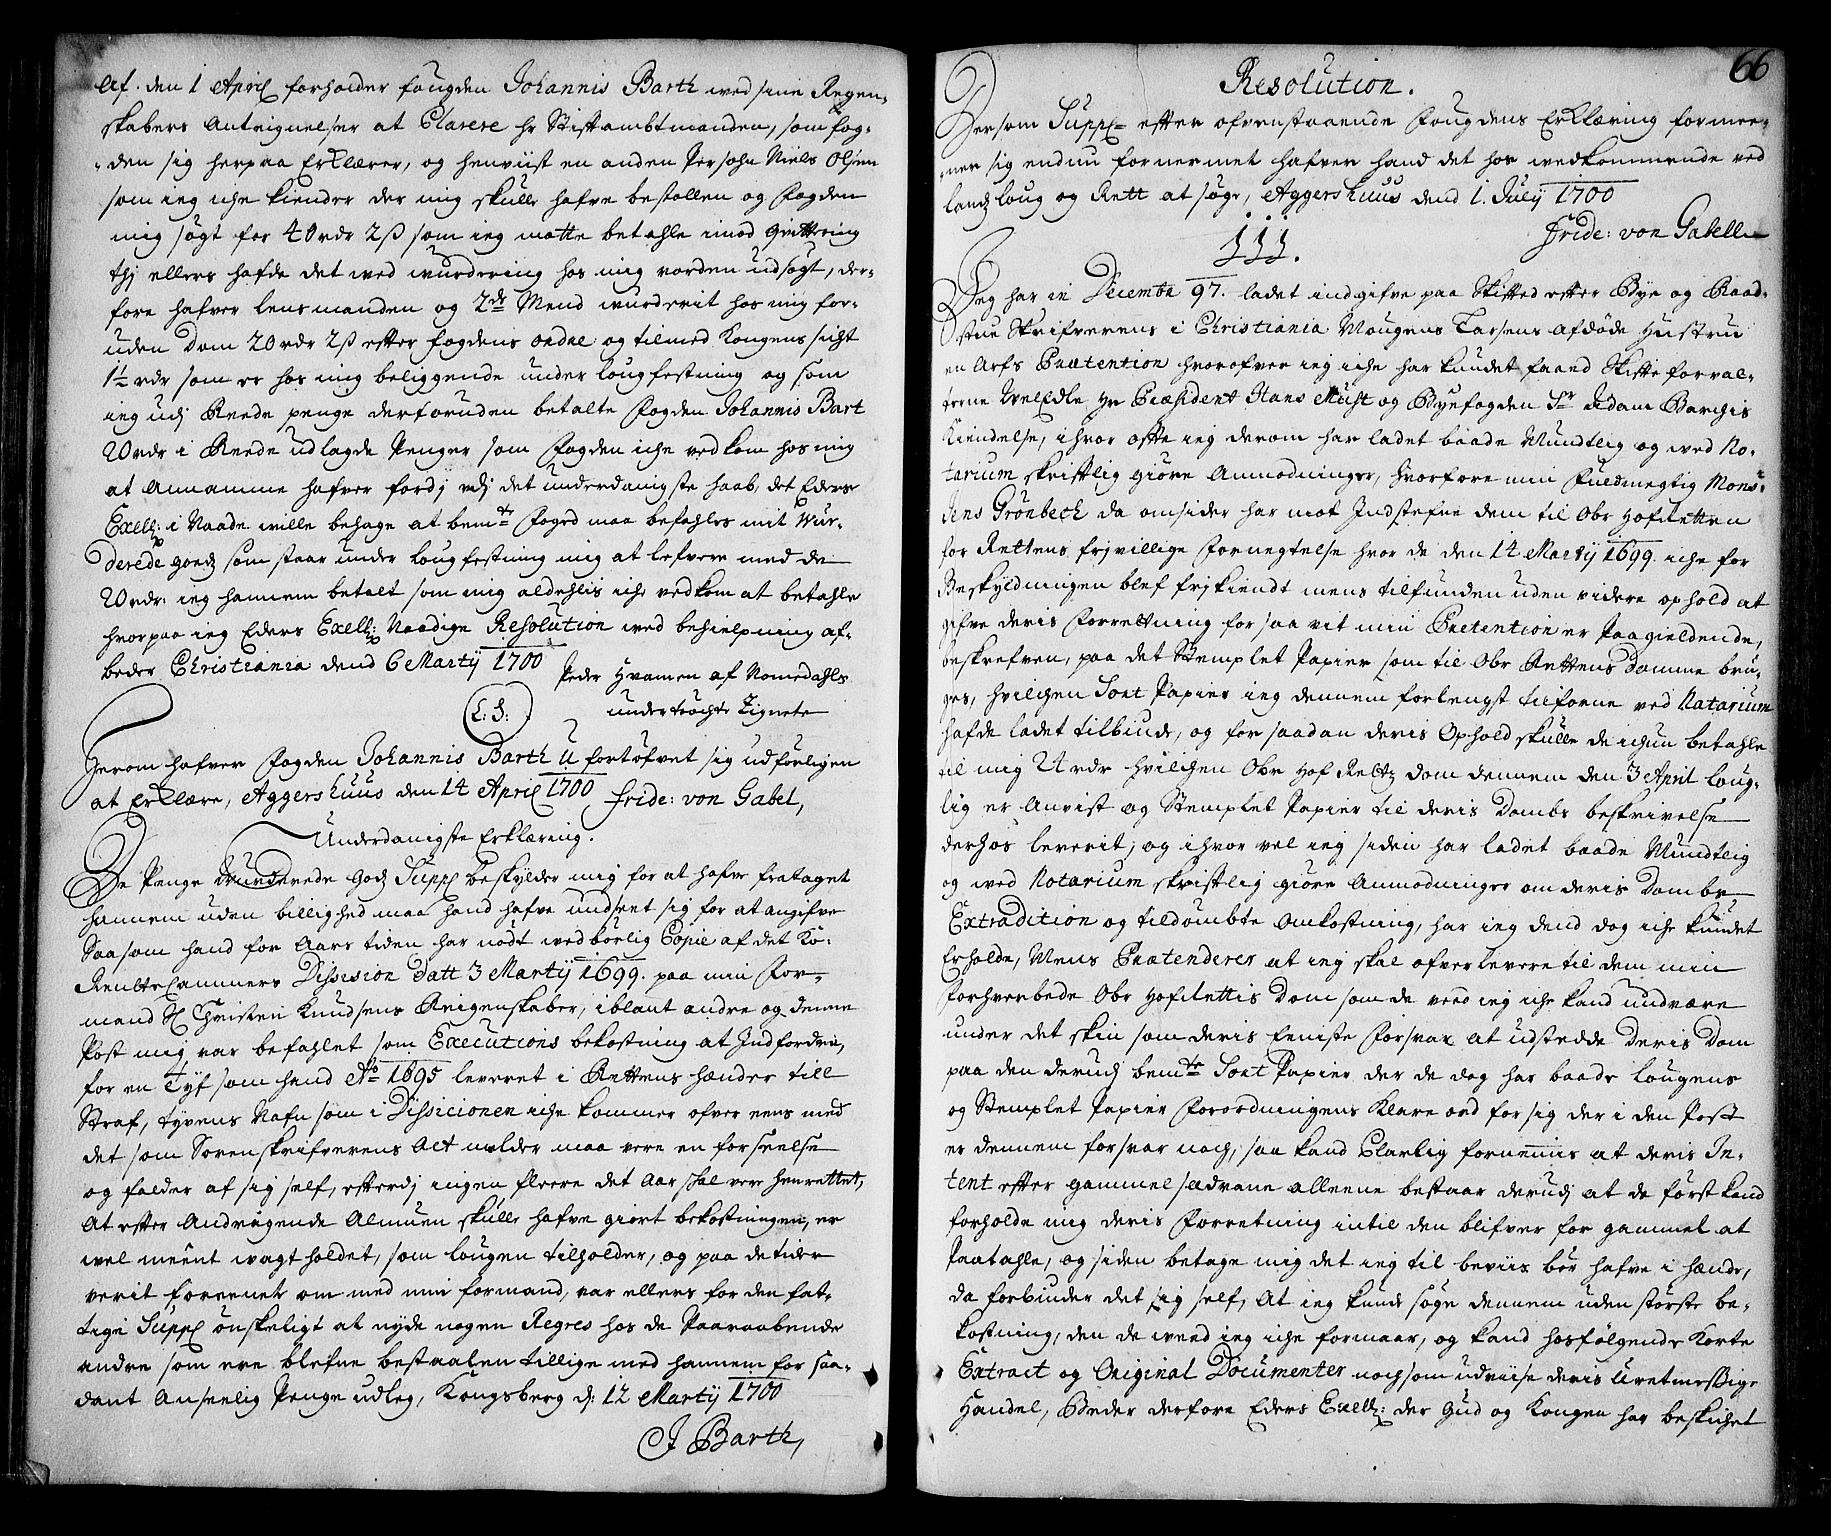 Af. den 1 April forholder fougden Johannis Barth wed sine Regen-
skabers Anteignelser at Clarere hr Stiftambtmanden, som fog-
den sig herpaa Erklærer, og henviist en anden Persohn Niels Olsen
som ieg iche kiender der mig skulle hafve bestollen og Fogden
mig søgt for 40 rdr 2 ß som ieg motte betahle imod Qvittering
thj ellers hafde det wed wurdering hos mig vorden udsøgt, der-
fore hafver lensmanden og 2de Mend wurderit hos mig for-
uden Dom 20 rdr 2 ß efter fogdens ordre og tilmed Kongens sicht
1½ rdr som er hos mig beliggende under lougfestning og som
ieg udj Reede penge derforuden betalte Fogden Johannis Bart
20 rdr i Reede udlagde Penger som Fogden iche vedkom hos mig
at Annamme hafver fordj udj det underdanigste haab, det Eders
Exell: i Naade wille behage at bemte Foged maa befahles mit Wur-
derede goedz som staar under lougfestning mig at lefvere med de
20 rdr: ieg hannem betalt som mig aldehlis iche vedkom at betahle
hvorpaa ieg Eders Exell: Naadige Resolution wed behielpning af-
beder Christiania dend 6 Martij 1700
Peder Hvamen af Nomedahls
(L: S:) undertröchte Zignete
Herom hafver Fogden Johannis Barth Ufortöfvet sig udförligen
at Erklære, Aggershuus den 14 April 1700 Fride: von Gabel,
Underdanigste Erklæring.
De Penge Wurderede Godz Suppl beskylder mig for at hafve frataget
hannem uden billighed maa hand hafve undseet sig for at angifve
Saasom hand for Aars tiden har nödt wedbörlig Copie af det Ko:
RenteCammers Dissision Datt 3 Martij 1699. paa min For-
mand Sl Christen Knudsens Reigenskaber, iblant andre og denne
Post mig var befahlet som Executions bekostning at Indfordre,
for en Tyf som hand Ao 1695 leveret i Rettens hænder till
Straf, tyvens Nafn som i Dissicionen iche kommer ofver eens med
det som Sorenskrifverens Act melder maa vere en forseelse
og falder af sig self, efterdj ingen fleere det Aar skal vere henrettet,
At efter Andragende Almuen skulle hafve giort bekostningen, er
vel meent wagtholdet, som lougen tilholder, og paa de tider
verit foreenet om med min formand, var ellers for den fat-
tige Suppl önskeligt at nyde nogen Regres hos de Paaraabende
andre som ere blefne bestaalen tillige med hannem for saa-
dant Anseelig Penge udleg, Kongsberg d: 12 Martij 1700
J Barth,
66
Resolution.
Dersom Suppl= efter ofvenstaaende Fougdens Erklæring formee-
ner sig endnu fornermet hafver hand det hos wedkommende ved
landz loug og Rett at søge, Aggershuus dend 1. July 1700
Fride: von Gabell
111.
Jeg har in Decembr 97. ladet indgifve paa Skifted efter Bye og Raad-
stue Skrifverens i Christiania Mougens Larsens afdöde Hustru
en Arfs Prætention hvorofver ieg iche har kundet faaed Skifteforval-
terne WelEdle Hr Præsident Hans Must og Byefogden Sr Adam Barchis
Kiendelse, ihvor ofte ieg derom har ladet baade Mundtlig og wed No-
tarium skriftlig giöre Anmodninger, hvorfore min Fuldmegtig Monsr
Jens Grönbech da omsider har mot Indstefne dem til Obr Hofretten
for Rettens frjvillige Fornegtelse hvor de den 14 Martij 1699. iche for
Beskyldningen blef frjkiendt mens tilfunden uden videre ophold at
gifve deris Forretning for saa vit min Prætention er Paagieldende,
beskrefven, paa det Stemplet Papier som til Obr Rettens Domme bru-
ges, hvilchen Sort Papier ieg dennem forlengst tilforne ved Notarium
hafde ladet tilbinde, og for saadan deris Ophold skulle de ichun betahle
til mig 24 rdr hvilchen Obr Hof Rettz dom dennem den 3 April loug-
lig er Anvist og Stemplet Papier til deris Dombs beskrivelse
derhos leverit, og ihvor vel ieg siden har ladet baade Mundtlig
og wed Notarium skriftlig giöre Anmodninger om deris Dombs
Extradition og tildömbte Omkostning, har ieg dend dog iche kundet
Erholde, Mens Prætenderer at ieg skal ofverlevere til dem min
forhverbede Obr Hofrettis Dom som de veed ieg iche kand undvære
under det skin som deris Eeniste Forsvar at udstedde Deris Dom
paa den derudj bemte Sort Papier der de dog har baade Lougens
og Stemplet Papier Forordningens klare ord for sig der i den Post
er dennem forsvar noch, saa kand Clarlig fornemmis at deris In-
tent efter gammel sædvane alleene bestaar derudj at de förstkand
forholde mig deris Forretning intil den blifver for gammel at
Paatahle, og siden betage mig det ieg til beviis bör hafve i hænde,
da forbinder det sig self, At ieg kunde söge dennem uden störste be-
kostning, den de weed ieg iche formaar, og kand hosfölgende Korte
Extract og Original Documenter nochsom udviise deris Uretmessige
Handel, Beder derfore Eders Exell: der Gud og Kongen har beskichet